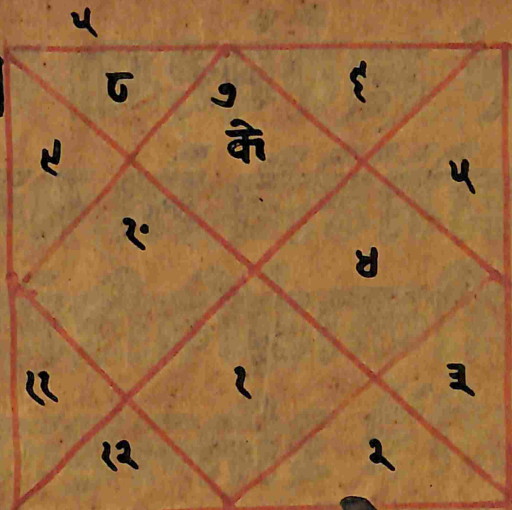 ५
८ ७ ६
के
९ ५
१० ४
११ १ ३
१२ २